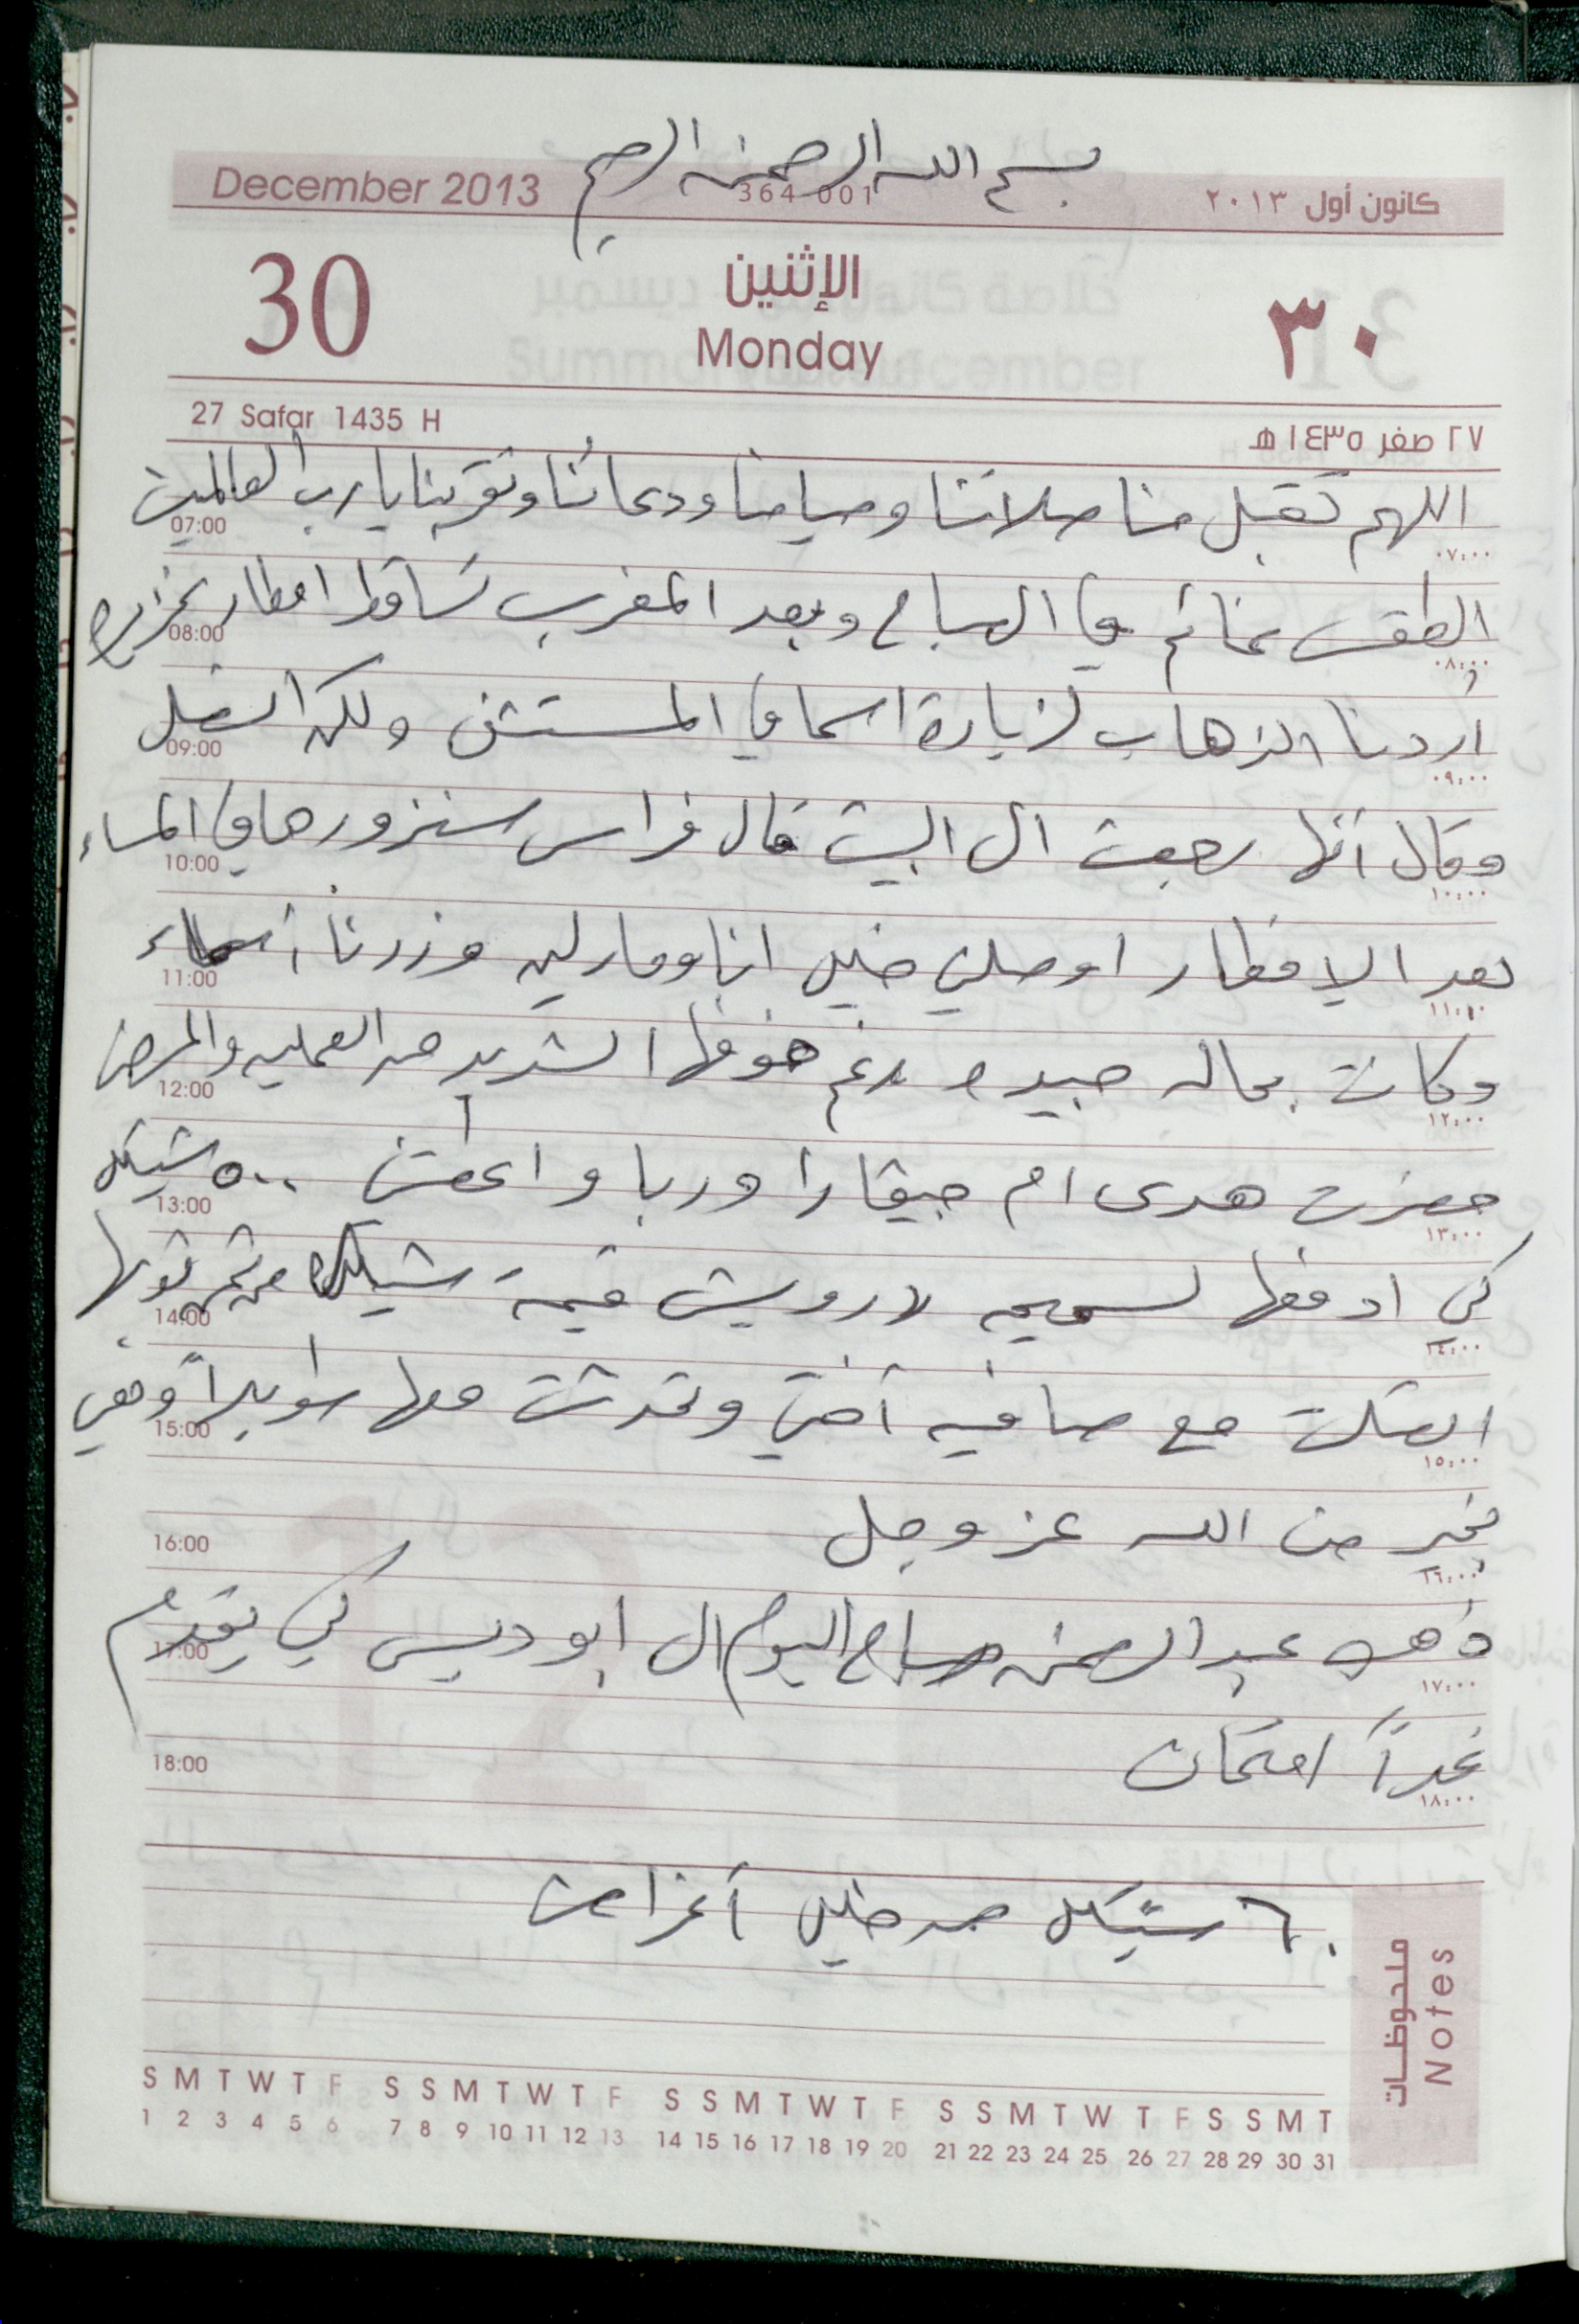 بسم الله الرحمن الرحيم
December 2013 364-001 كانون أول ٢٠١٣
30 الإثنين ٣٠
Monday
27 Safar 1435 H ٢٧ صفر ١٤٣٥ هـ
اللهم تقبل منا صلاتنا وصيامنا ودعائنا وتقربنا يا رب العالمين
07:00 ٠٧:٠٠
الطقس غائم في الصباح وبعد المغرب تساقط امطار غزيره
08:00 ٠٨:٠٠
أردنا الذهاب لزيارة اسما في المستشفى ولكن اتصل
09:00 ٠٩:٠٠
وقال أنها رجعت الى البيت قال فراس سنزورها في المساء
10:00 ١٠:٠٠
بعد الإفطار اوصلني خليل انا ومارلين وزرنا أسماء
11:00 ١١:٠٠
وكانت بحاله جيده رغم خوفها الشديد من العمليه والمرض
12:00 ١٢:٠٠
حضرت هدى ام جيفارا وربا واعطتني ٥٠٠ شيكل
13:00 ١٣:٠٠
كي ادفعها لسميحه درويش قيمة شيكل من ثمن ثوبها
14:00 ١٤:٠٠
اتصلت مع صافيه أختي وتحدثت معها طويلاً وهي
15:00 ١٥:٠٠
بخير من الله عز وجل
16:00 ١٦:٠٠
ذهب عبد الرحمن صباح اليوم الى ابو ديس كي يقدم
17:00 ١٧:٠٠
غداً امتحان
18:00 ١٨:٠٠
٦٠ شيكل من خليل أغراض
ملحوظات
Notes
S M T W T F S S M T W T F S S M T W T F S S M T W T F S S M T
1 2 3 4 5 6 7 8 9 10 11 12 13 14 15 16 17 18 19 20 21 22 23 24 25 26 27 28 29 30 31